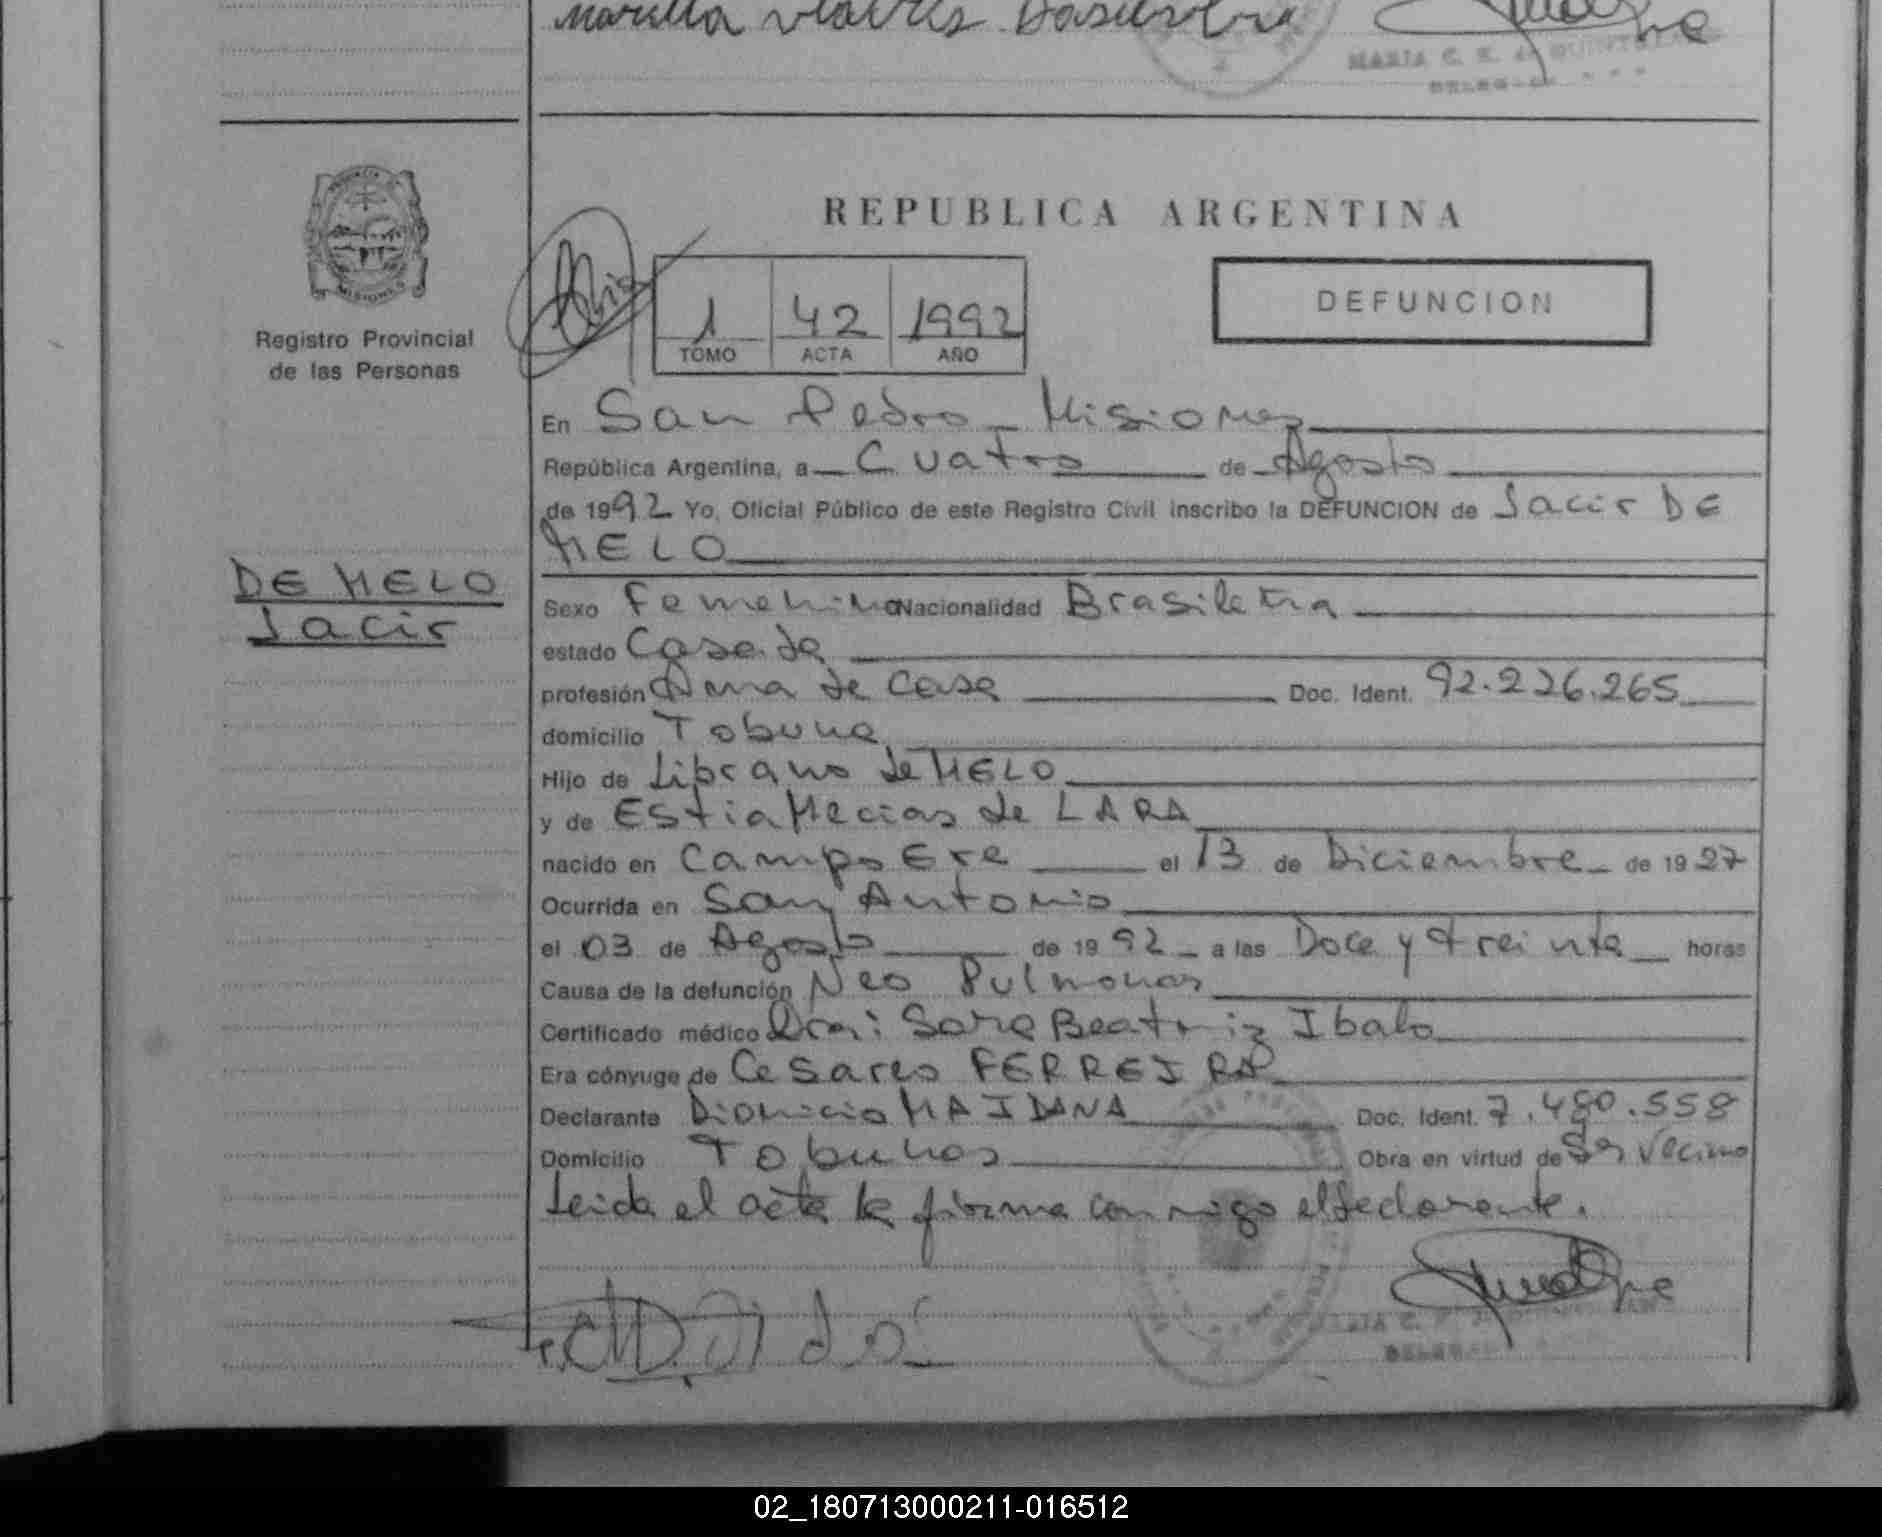 REPUBLICA ARGENTINA
Registro Provincial
de las Personas
1 42 1992
TOMO ACTA AÑO
DEFUNCION
En San Pedro - Misiones
República Argentina, a Cuatro de Agosto
de 1992 Yo, Oficial Público de este Registro Civil inscribo la DEFUNCION de Jacir DE
MELO
DE MELO
Jacir
Sexo Femenino Nacionalidad Brasilera
estado Casada
profesión Ama de Casa Doc. Ident. 92.226.265
domicilio Tobuna
Hijo de Librano de MELO
y de Estia Mecias de LARA
nacido en Campo Ere el 13 de Diciembre de 1927
Ocurrida en San Antonio
el 03 de Agosto de 1992 a las Doce y treinta horas
Causa de la defunción Neo Pulmonar
Certificado médico Dra: Sara Beatriz Ibalo
Era cónyuge de Cesareo FERREIRA
Declarante Dionicio MAIDANA Doc. Ident. 7.480.558
Domicilio Tobunas Obra en virtud de Ser Vecino
Leida el acta la firma conmigo el declarante.
02_180713000211-016512